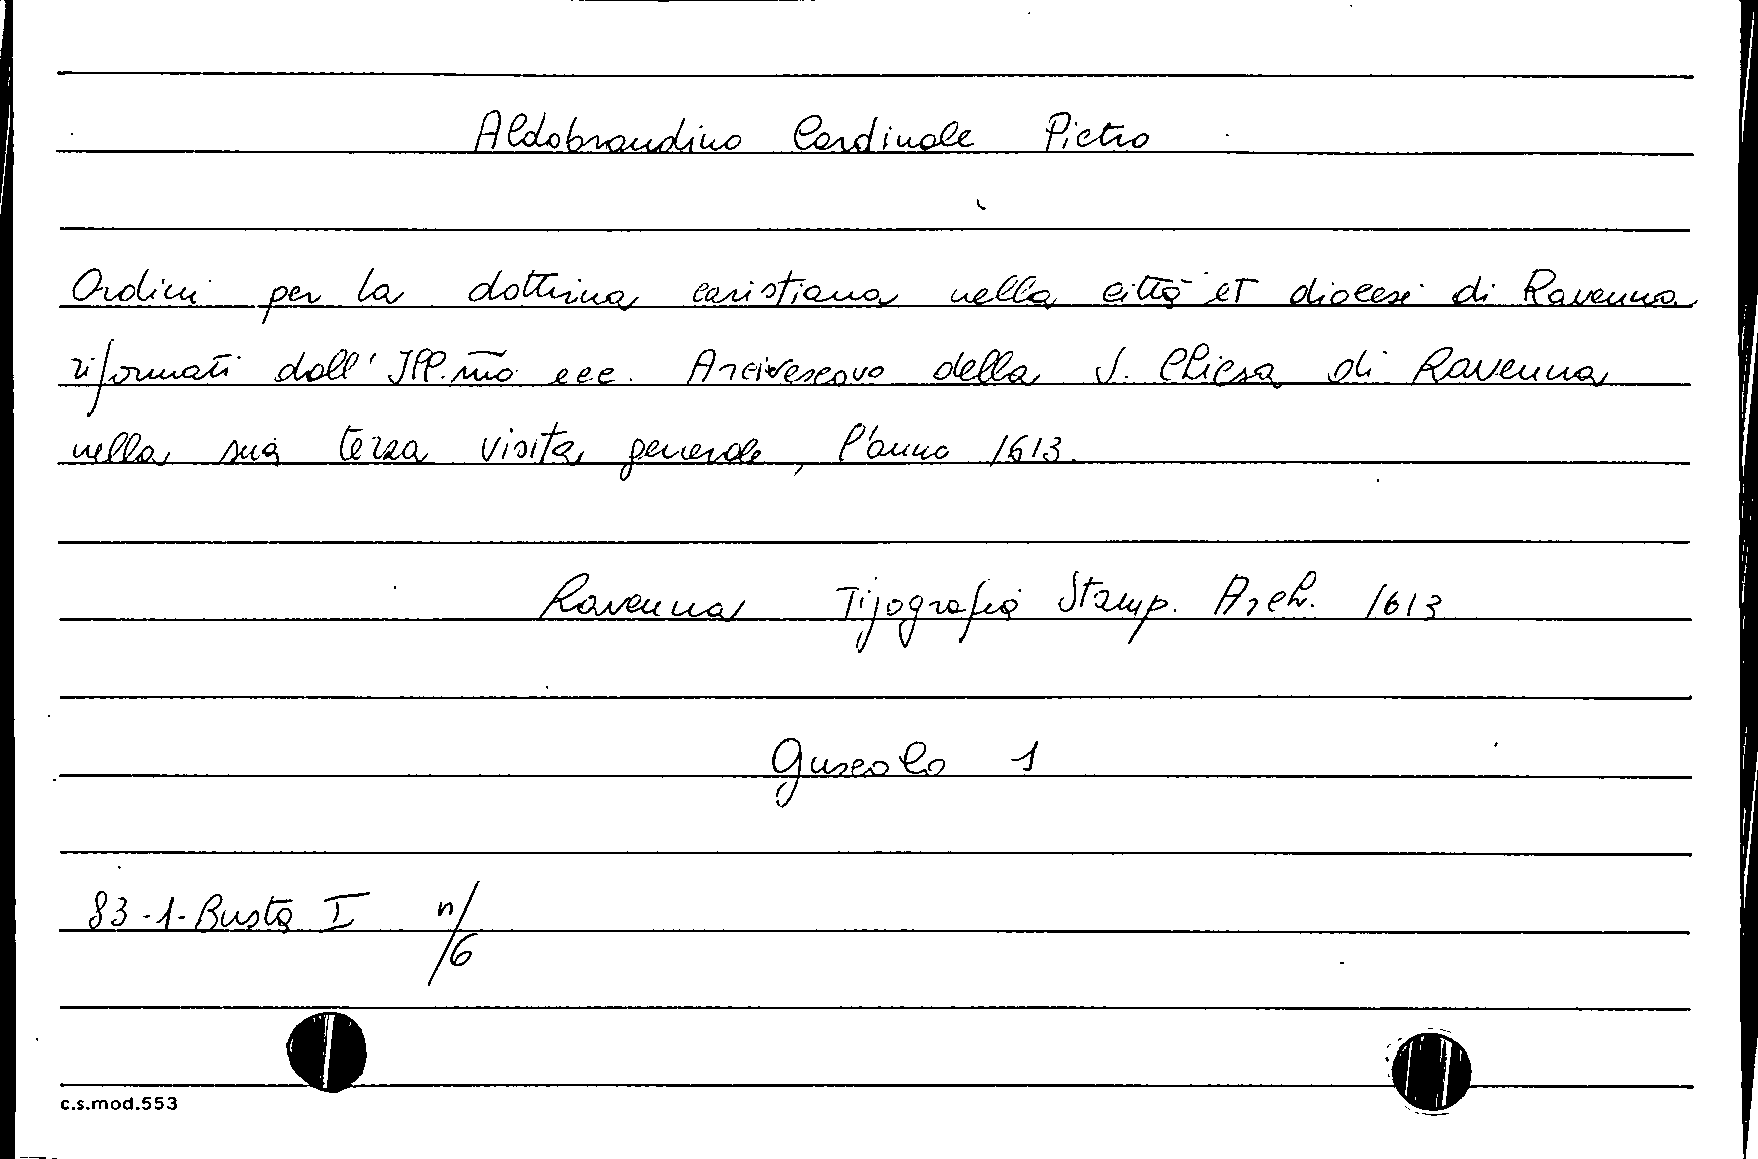 Aldobrandino Cardinale Pietro
Ordini per la dottrina caristiana nella città et diocesi di Ravenna
riformati dall' Ill.mo ecc. Arcivescovo della S. Chiesa di Ravenna
nella sua terza visita generale, l'anno 1613.
Ravenna Tipografia Stamp. Arch. 1613
Guscolo 1
83-1-Busta I n/6
c.s.mod.553